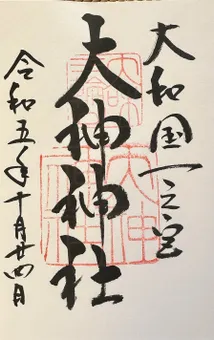 大和国一之宮
大神神社
令和五年十月廿四日